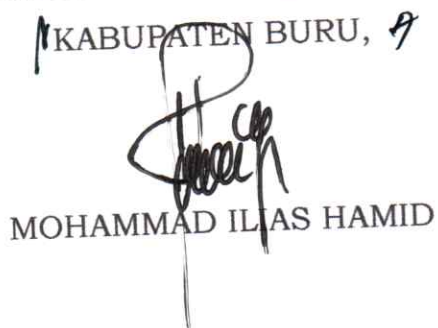 KABUPATEN BURU,
MOHAMMAD ILIAS HAMID